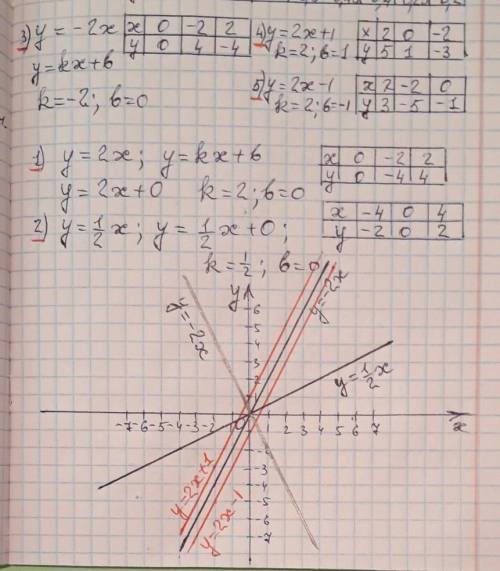 3) y = -2x
x 0 -2 2
y 0 4 -4
y = kx + b
k = -2; b = 0
4) y = 2x+1
k = 2; b = 1
x 2 0 -2
y 5 1 -3
5) y = 2x-1
k = 2; b = -1
x 2 -2 0
y 3 -5 -1
1) y = 2x; y = kx + b
y = 2x + 0 k = 2; b = 0
x 0 -2 2
y 0 -4 4
2) y = 1/2 x; y = 1/2 x + 0;
k = 1/2; b = 0
x -4 0 4
y -2 0 2
y
y = -2x
y = -2x
y = 1/2 x
x
6
5
4
3
2
-7 -6 -5 -4 -3 -2 -1 1 2 3 4 5 6 7
-3
-4
-5
-6
-7
y = 2x+1
y = 2x-1